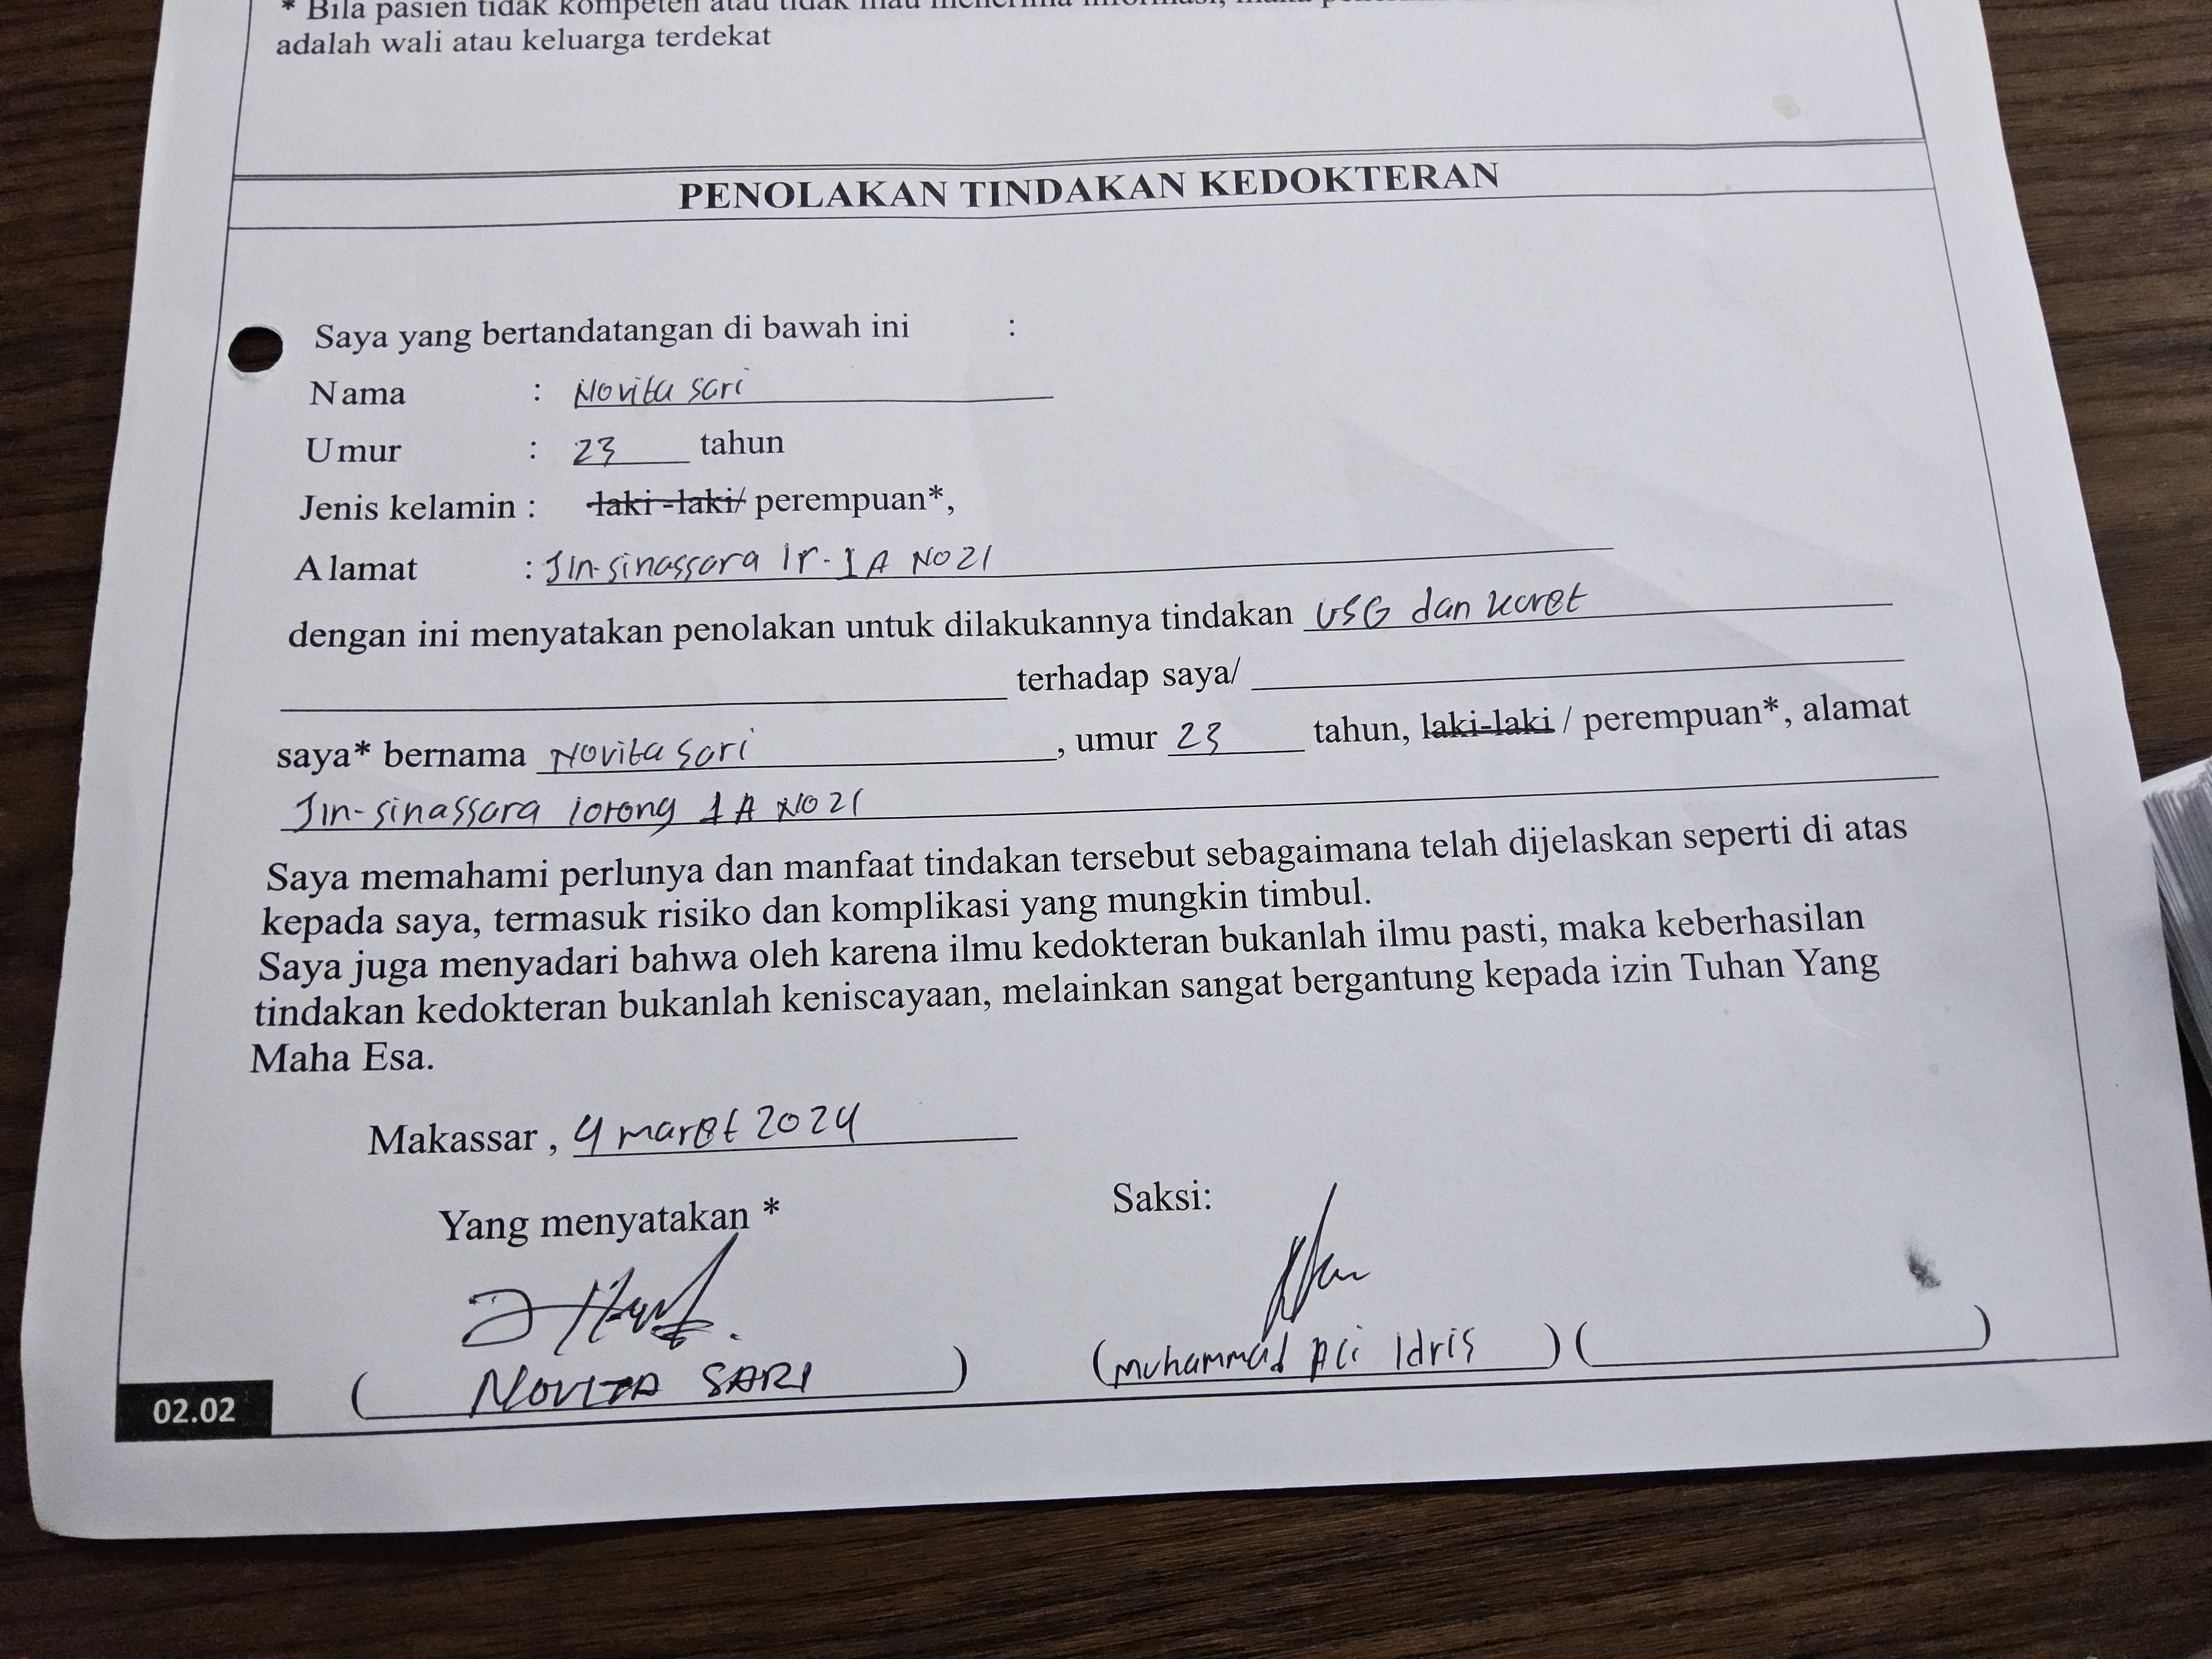 * Bila pasien tidak kompeten atau tidak mau menerima informasi, maka
adalah wali atau keluarga terdekat
PENOLAKAN TINDAKAN KEDOKTERAN
Saya yang bertandatangan di bawah ini :
Nama : Novita sari
Umur : 23 tahun
Jenis kelamin : laki-laki/ perempuan*,
Alamat : Jln-sinassara lr. 1A NO 21
dengan ini menyatakan penolakan untuk dilakukannya tindakan USG dan kuret
terhadap saya/
saya* bernama Novita sari, umur 23 tahun, laki-laki / perempuan*, alamat
Jln-sinassara lorong 1A NO 21
Saya memahami perlunya dan manfaat tindakan tersebut sebagaimana telah dijelaskan seperti di atas
kepada saya, termasuk risiko dan komplikasi yang mungkin timbul.
Saya juga menyadari bahwa oleh karena ilmu kedokteran bukanlah ilmu pasti, maka keberhasilan
tindakan kedokteran bukanlah keniscayaan, melainkan sangat bergantung kepada izin Tuhan Yang
Maha Esa.
Makassar , 4 maret 2024
Yang menyatakan * Saksi:
( NOVITA SARI ) (muhammad Ali Idris ) ( )
02.02